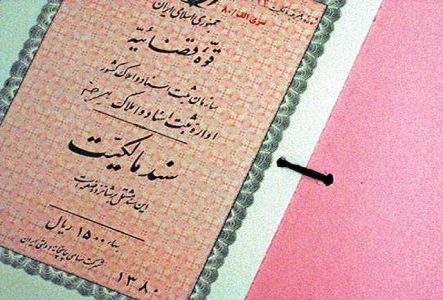 جمهوری اسلامی ایران
قوّه قضائیه
سازمان ثبت اسناد و املاک کشور
اداره ثبت اسناد و املاک
سند مالکیت
این سند مشتمل بر شانزده صفحه است
بهاء ۱۵۰۰ ریال
شرکت سهامی چاپخانه دولتی ایران
۱۳۸۰